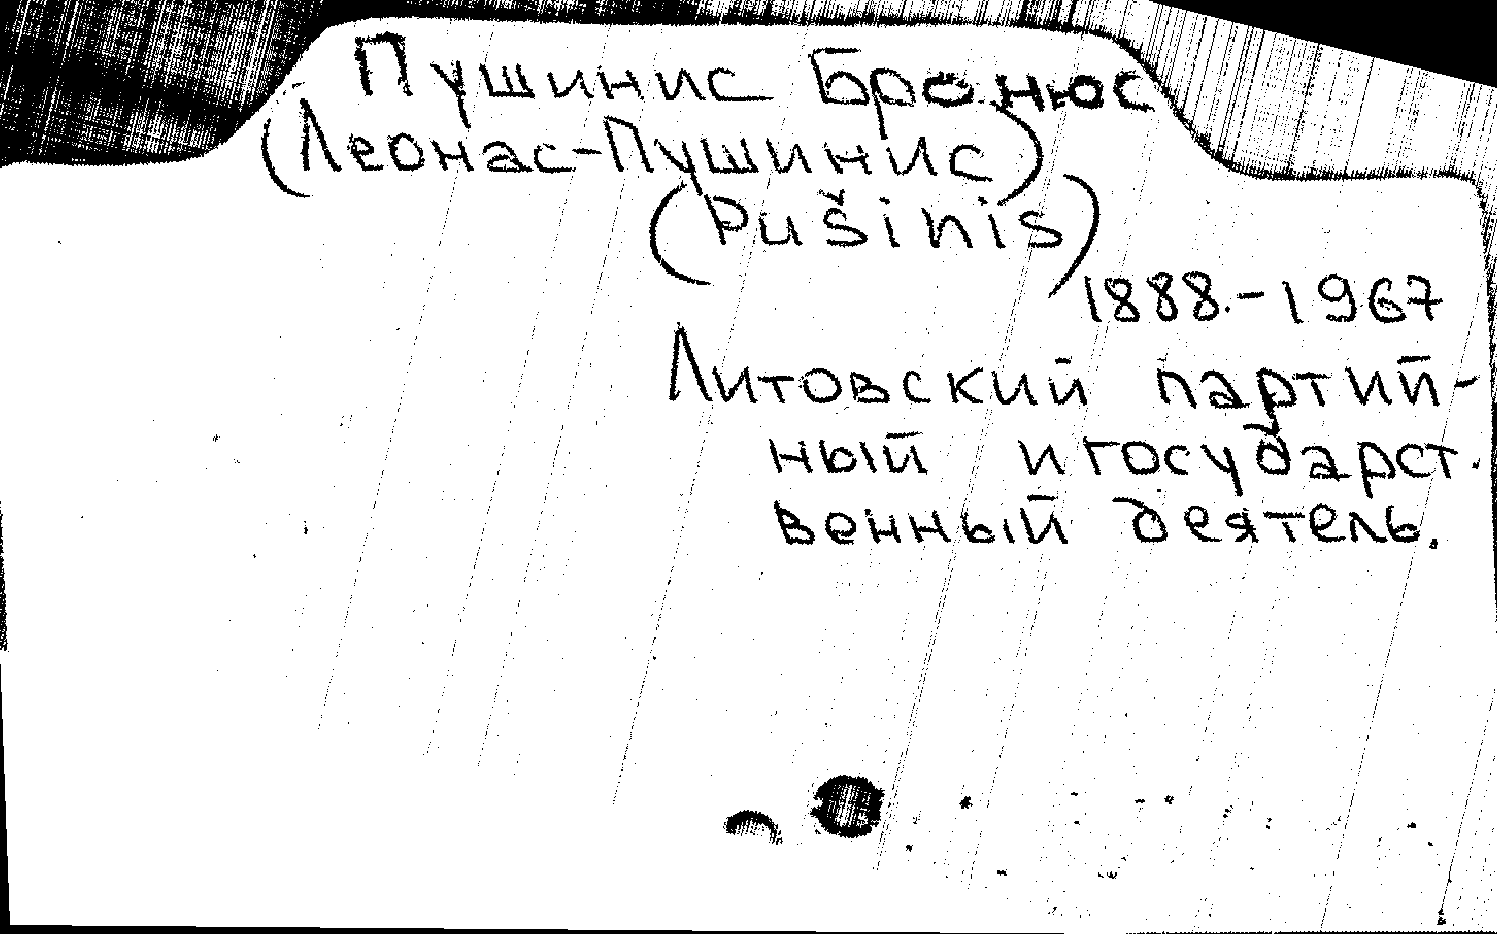 Пушинис Бронюс
(Леонас-Пушинис)
(Pušinis)
1888.-1967
Литовский партий-
ный и государст-
венный деятель.